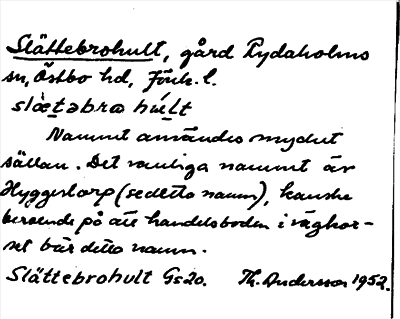 Slättebrohult, gård Rydaholms
sn, Östbo hd, Jönk. l.
slætəbra hult
Namnet användes mycket
sällan. Det vanliga namnet är
Hyggestorp (se detta namn), kanske
beroende på att handelsboden i väghor-
net bär detta namn.
Slättebrohult Gs20. Th. Andersson 1952.